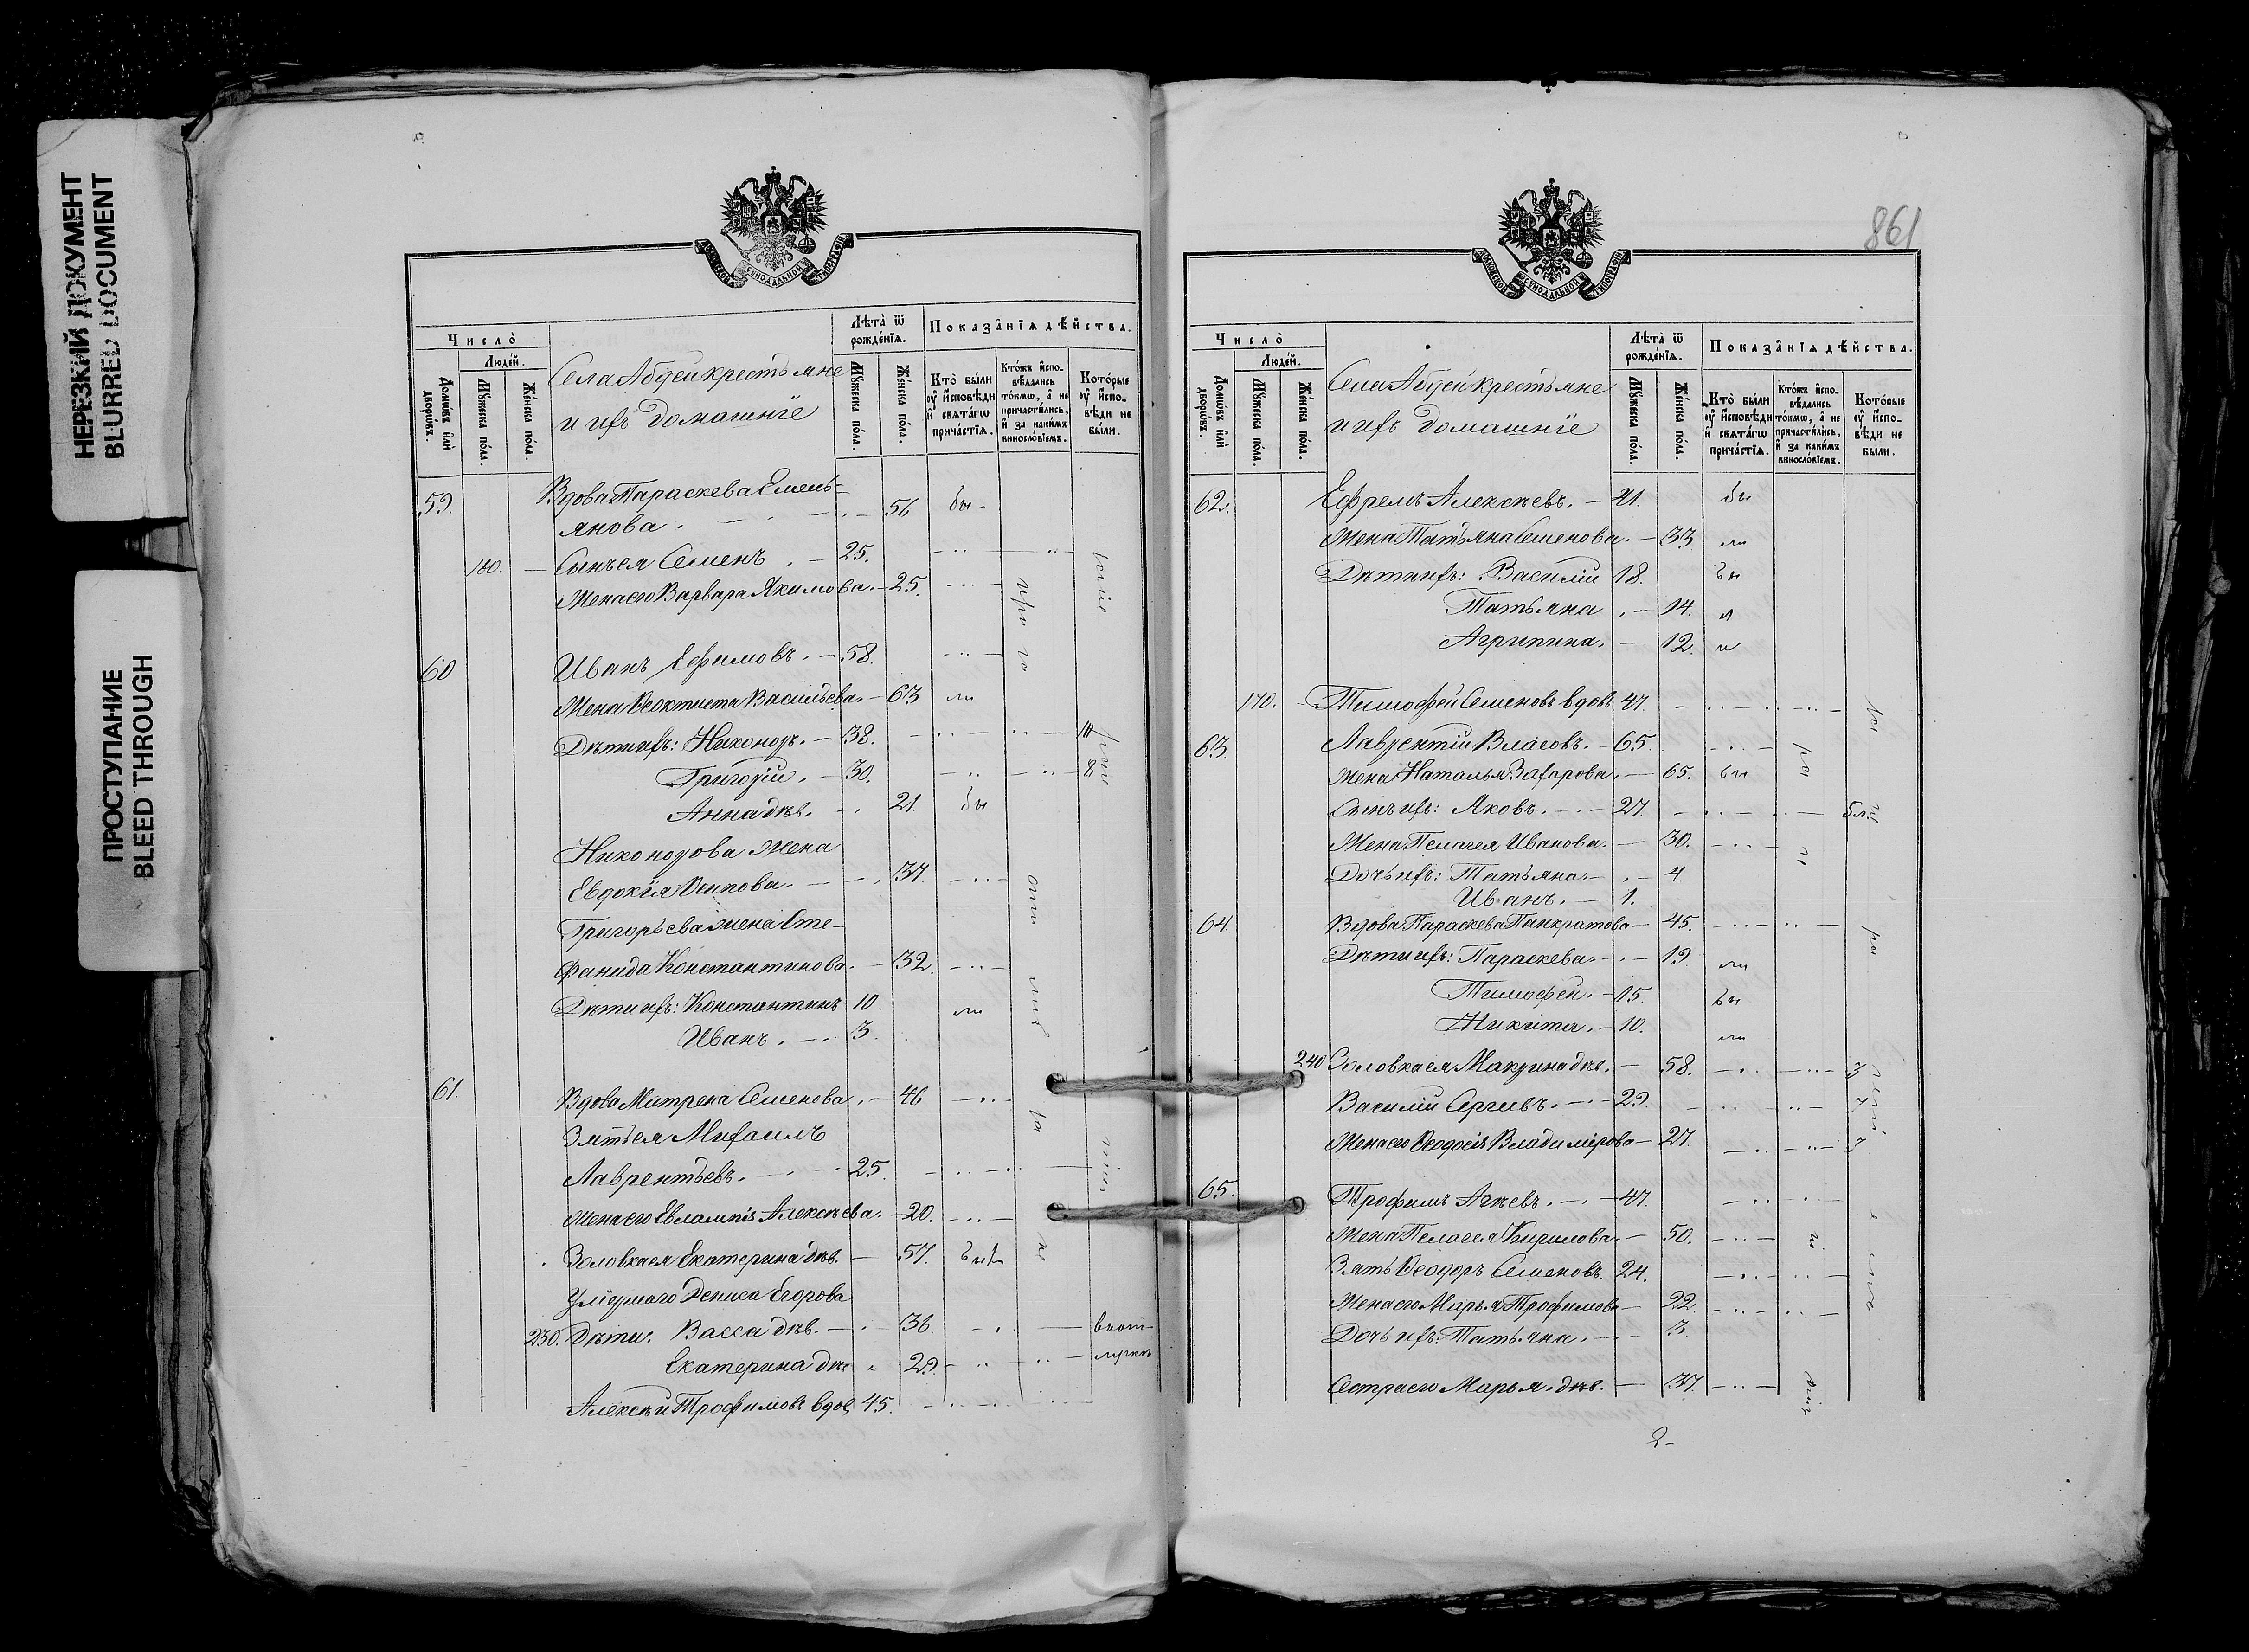 НЕРЕЗКИЙ ДОКУМЕНТ
BLURRED DOCUMENT
ПРОСТУПАНИЕ
BLEED THROUGH
Число̀
Людей.
Домѡвъ илѝ дворѡвъ.
Мꙋжеска пола.
Женска пола.
Села Абдеи крестьяне
и ихъ домашніе
Лѣта̀ ѿ рождéнїѧ.
Мꙋжеска пола.
Женска пола.
Показанїѧ дѣйства.
Кто̀ были оу исповѣди и свѧтагѡ причастїѧ.
Ктожъ исповѣдались токмѡ, а не причастились, и за какимъ винословїемъ.
Которые оу исповѣди не были.
59. Вдова Параскева Емель=
янова. 56 бы
160. Сынъ ея Семенъ. 25.
Жена его Варвара Якимова. 25.
60 Иванъ Ефимовъ. 58.
Жена Ѳеоктиста Васильева. 63 ли
Дѣти ихъ: Никоноръ. 38.
Григорій. 30. 8
Анна дѣв. 21. бы
Никонорова жена
Евдокія Осипова. 37.
Григорьева жена Сте-
фанида Константинова. 32.
Дѣти ихъ: Константинъ 10. ли
Иванъ. 3.
61. Вдова Матрена Семенова. 46
Зять ея Михаилъ
Лаврентьевъ. 25.
Жена его Евлампія Алексѣева. 20.
Золовка ея Екатерина дѣв. 57. был
Умершаго Дениса Егорова
230. Дѣти: Васса дѣв. 36. въ от-
Екатерина дѣв 29. лучкѣ
Алексѣй Трофимовъ вдов. 45.
861
Число̀
Людей.
Домѡвъ илѝ дворѡвъ.
Мꙋжеска пола.
Женска пола.
Села Абдеи крестьяне
и ихъ домашніе
Лѣта̀ ѿ рождéнїѧ.
Мꙋжеска пола.
Женска пола.
Показанїѧ дѣйства.
Кто̀ были оу исповѣди и свѧтагѡ причастїѧ.
Ктожъ исповѣдались токмѡ, а не причастились, и за какимъ винословїемъ.
Которые оу исповѣди не были.
62. Ефремъ Алексѣевъ. 41. бы
Жена Татьяна Семенова. 33 ли
Дѣти ихъ: Василій 18. бы
Татьяна 14.
Агрипина. 12.
170. Тимофей Семеновъ вдовъ 47.
63. Лаврентій Власовъ. 65.
Жена Наталья Захарова. 65. бы
Сынъ ихъ: Яковъ. 27.
Жена Пелагея Иванова. 30.
Дочь ихъ: Татьяна. 4.
Иванъ. 1.
64. Вдова Параскева Панкратова 45.
Дѣти ихъ: Параскева. 19. ли
Тимофей. 15. бы
Никита. 10. ли
240 Золовка ея Макрина дѣв. 58. 3
Василій Сергіевъ. 29.
Жена его Ѳеодосія Владимірова 27.
65. Трофимъ Агѣевъ. 47.
Жена Пелагея Кирилова. 50.
Зять Ѳеодоръ Семеновъ. 24.
Жена его Марья Трофимова 22.
Дочь ихъ: Татьяна. 3.
Сестра его Марья. дѣв. 37.
2-